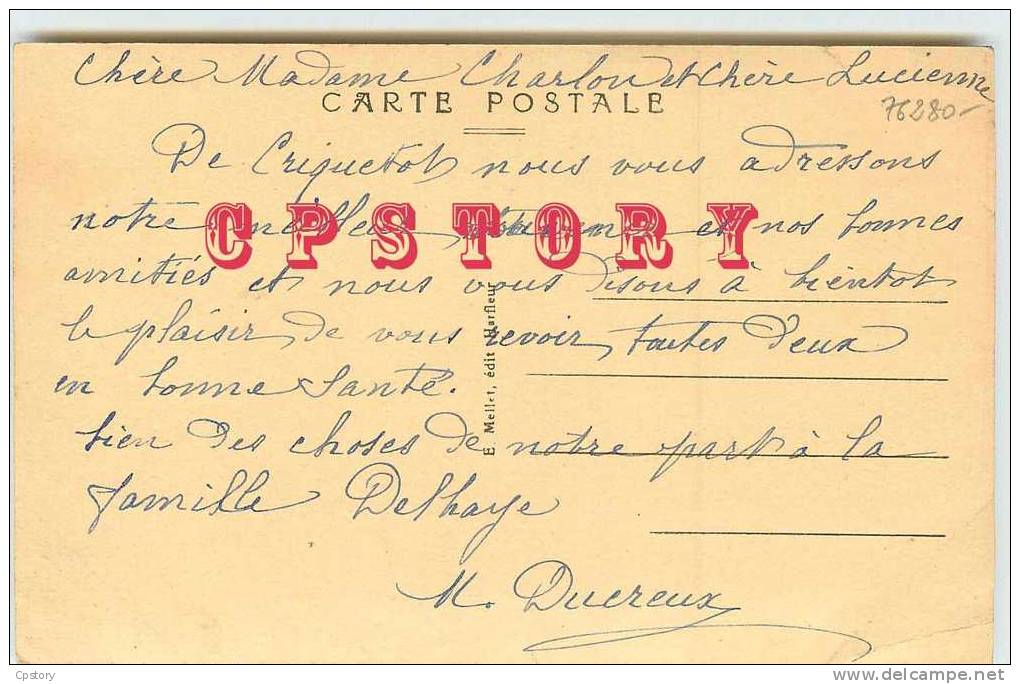 Chère Madame Charlon et Chère Lucienne
CARTE POSTALE
76280-
De Criquetot nous vous adressons
notre meilleur et nos bonnes
CPSTORY
amitiés et nous vous disons à bientot
le plaisir de vous revoir, toutes deux
en bonne Santé.
bien des choses de notre part à la
famille Delhaye
M. Ducreux
E. Mellet, édit Harfleur
Cpstory
delcampe.net